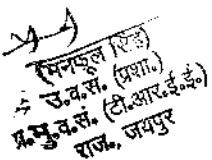 (मनफूल सिंह)
उ.व.स. (प्रशा.)
प्र.मु.व.सं. (टी.आर.ई.ई.)
राज., जयपुर